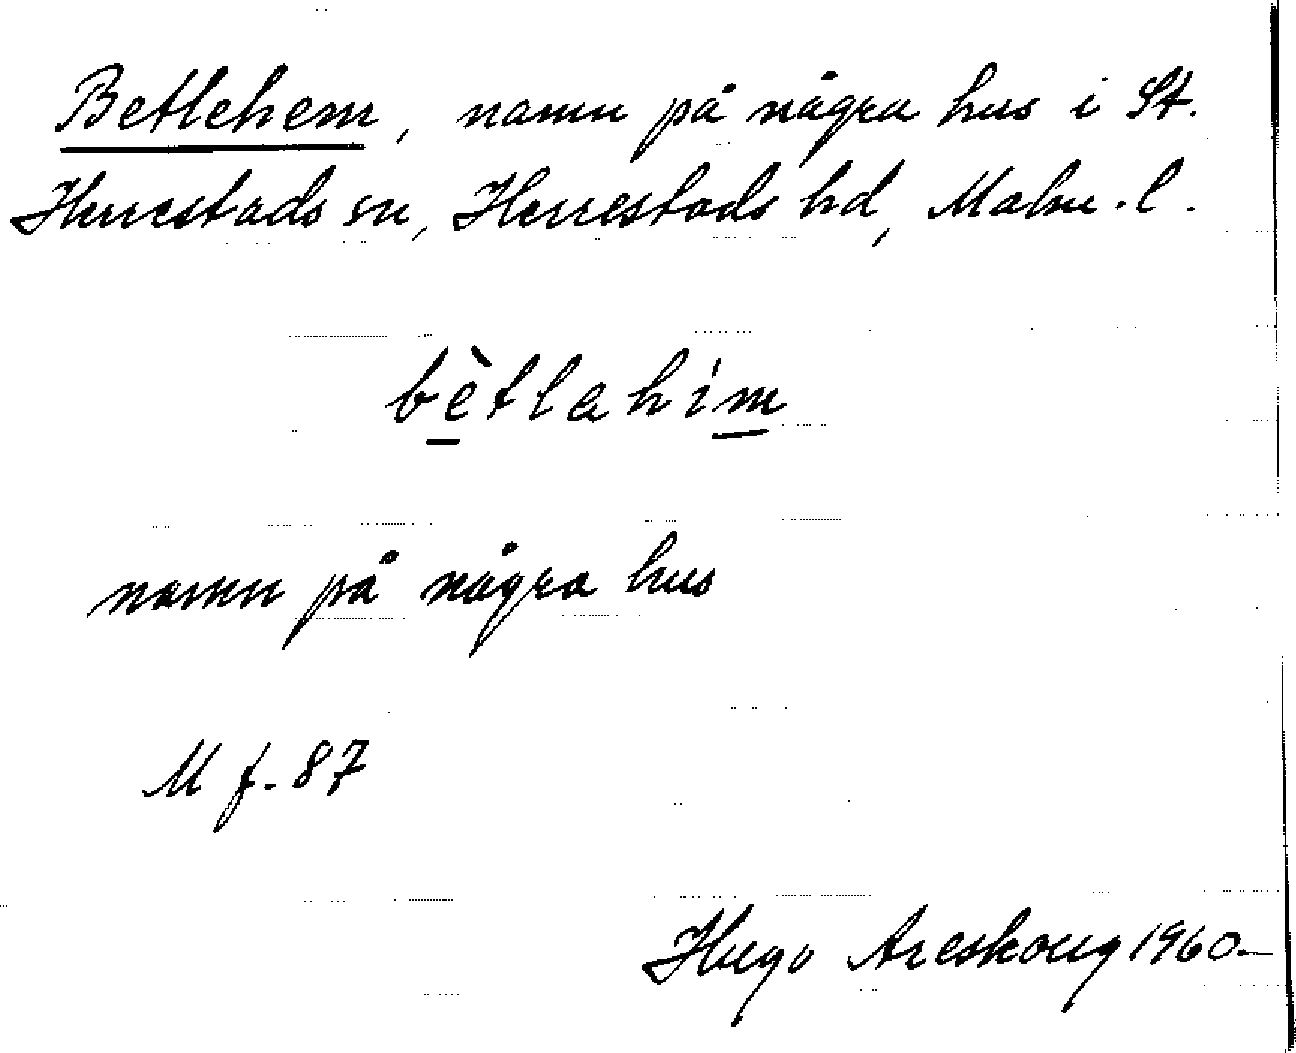 Betlehem, namn på några hus i St.
Herrestads sn, Herrestads hd, Malm. l.
bètlahim
namn på några hus
M f. 87
Hugo Areskoug 1960